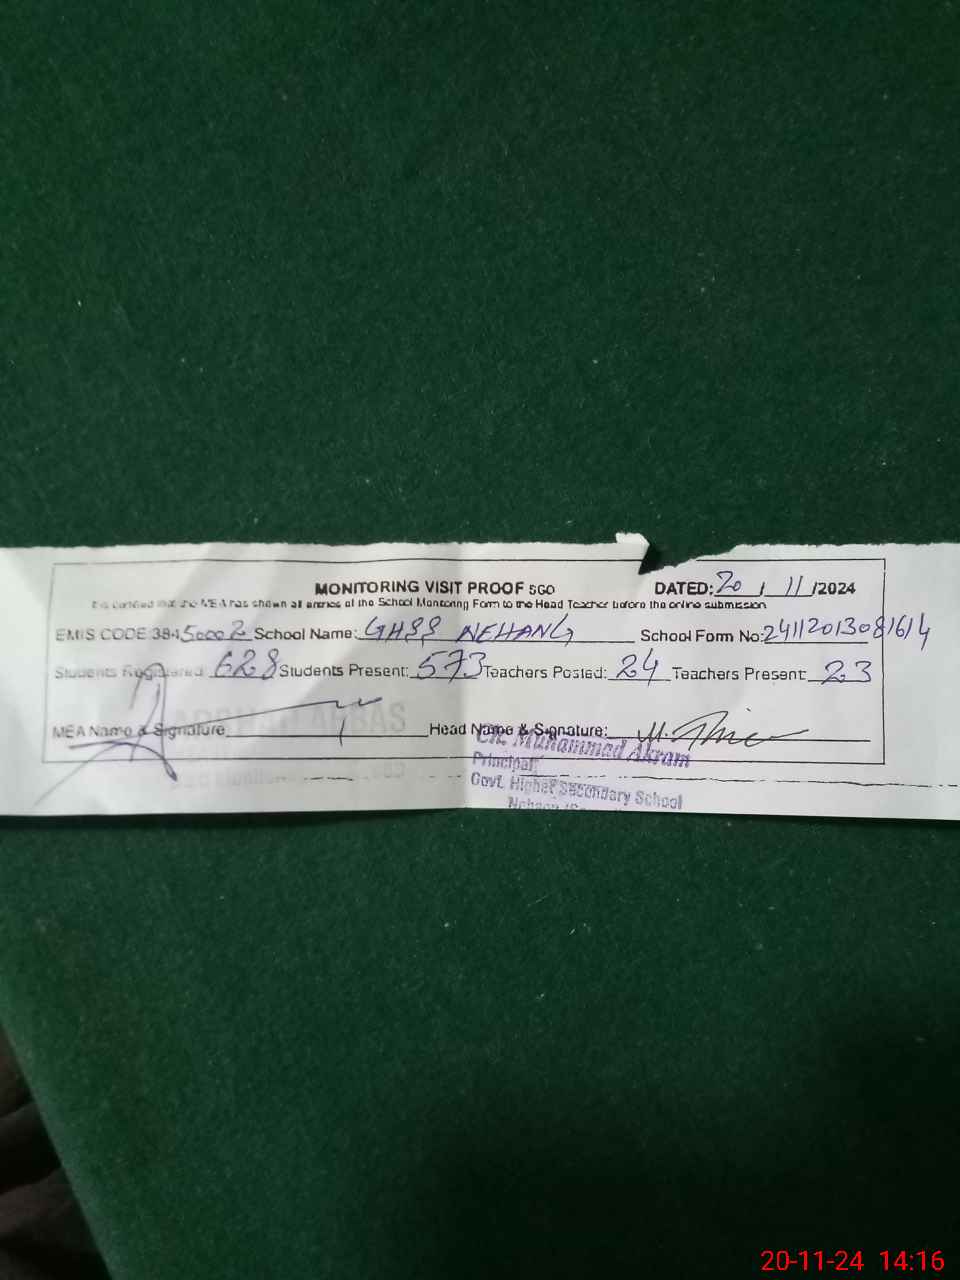 MONITORING VISIT PROOF SGO DATED: 20 / 11 /2024
It is certified that the MEA has shown all entries of the School Monitoring Form to the Head Teacher before the online submission
EMIS CODE 384 50002 School Name: GHSS NEHANG School Form No: 24112013081614
Students Registered: 628 Students Present: 573 Teachers Posted: 24 Teachers Present: 23
MEA Name & Signature: Head Name & Signature:
ABBAS
Ch. Muhammad Akram
Principal
Govt. Higher Secondary School
20-11-24 14:16